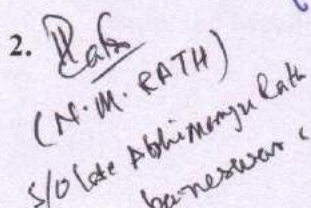 2.
(N.M. RATH)
S/o Late Abhimanyu Rath
baneswar